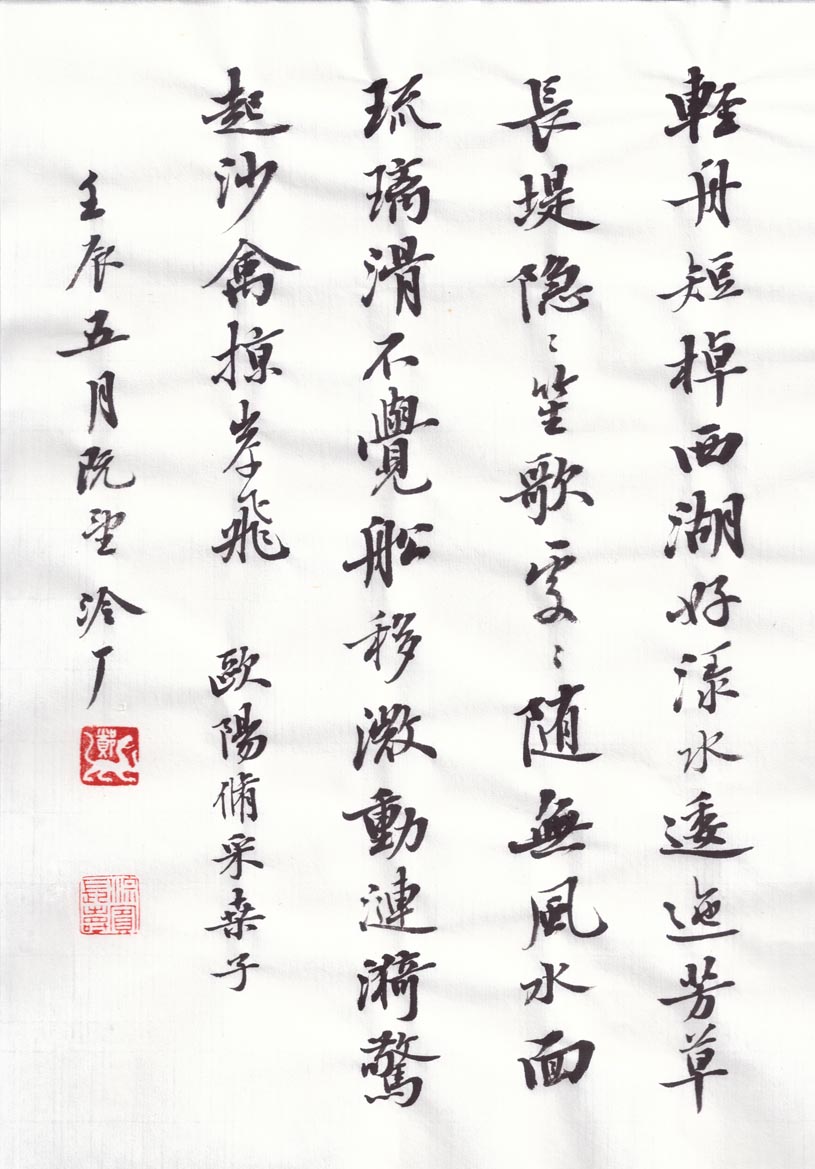 輕舟短棹西湖好漾水逶迤芳草
長堤隐〻笙歌處〻随無風水面
琉璃滑不覺船移微動漣漪驚
起沙禽掠岸飛 歐陽脩采桑子
壬辰五月阮望泠丁